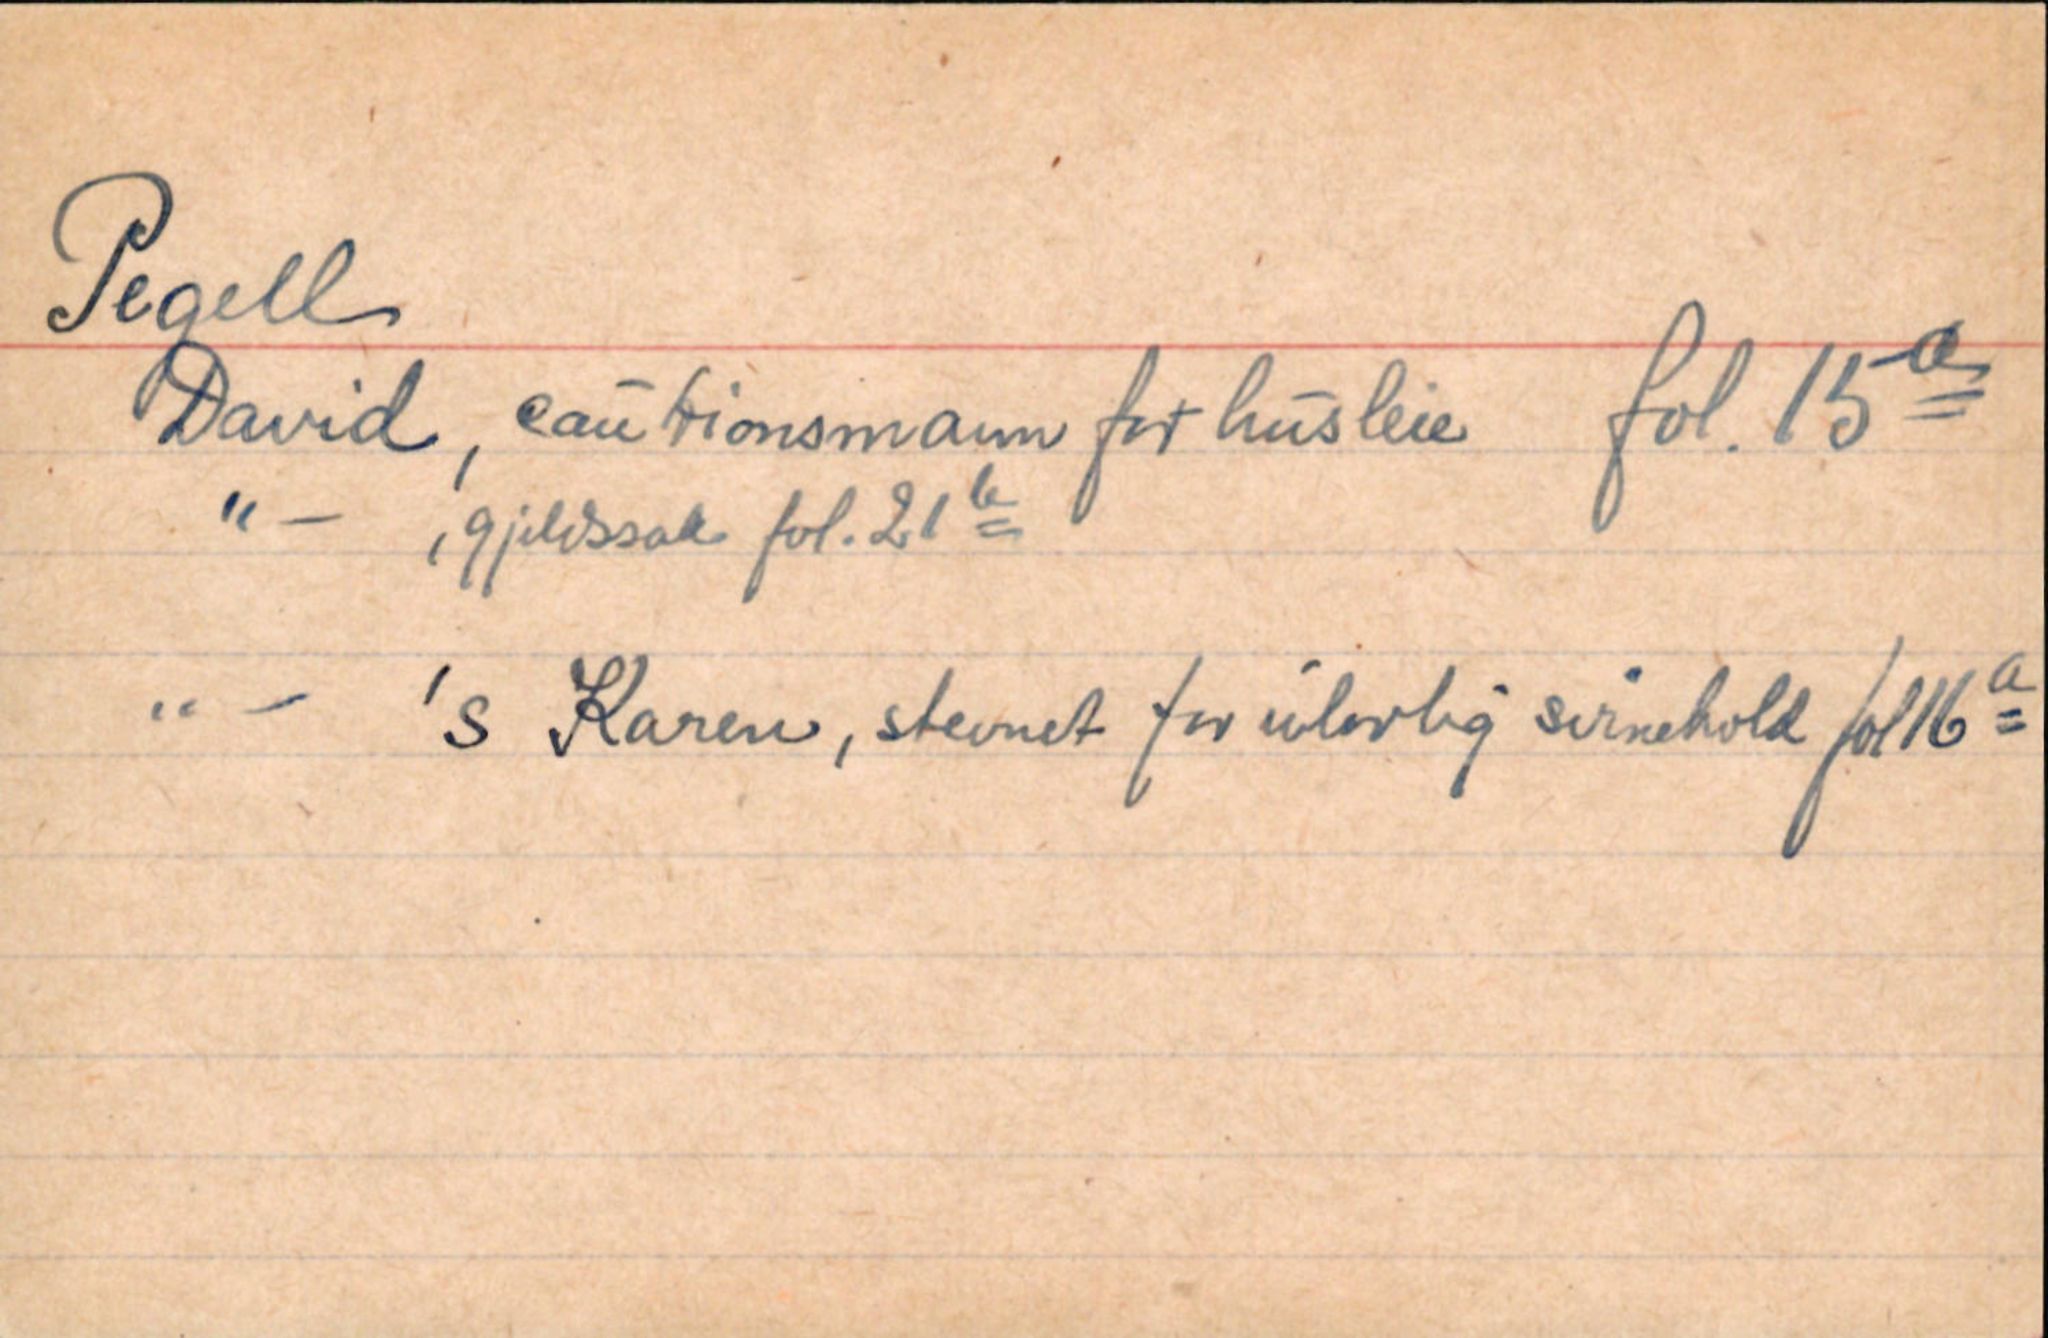 Pegell
David, cautionsmann for husleie fol. 15a
"- , gjeldssak fol. 21b
"- 's Karen, stevnet for ulovlig svinehold fol 16a